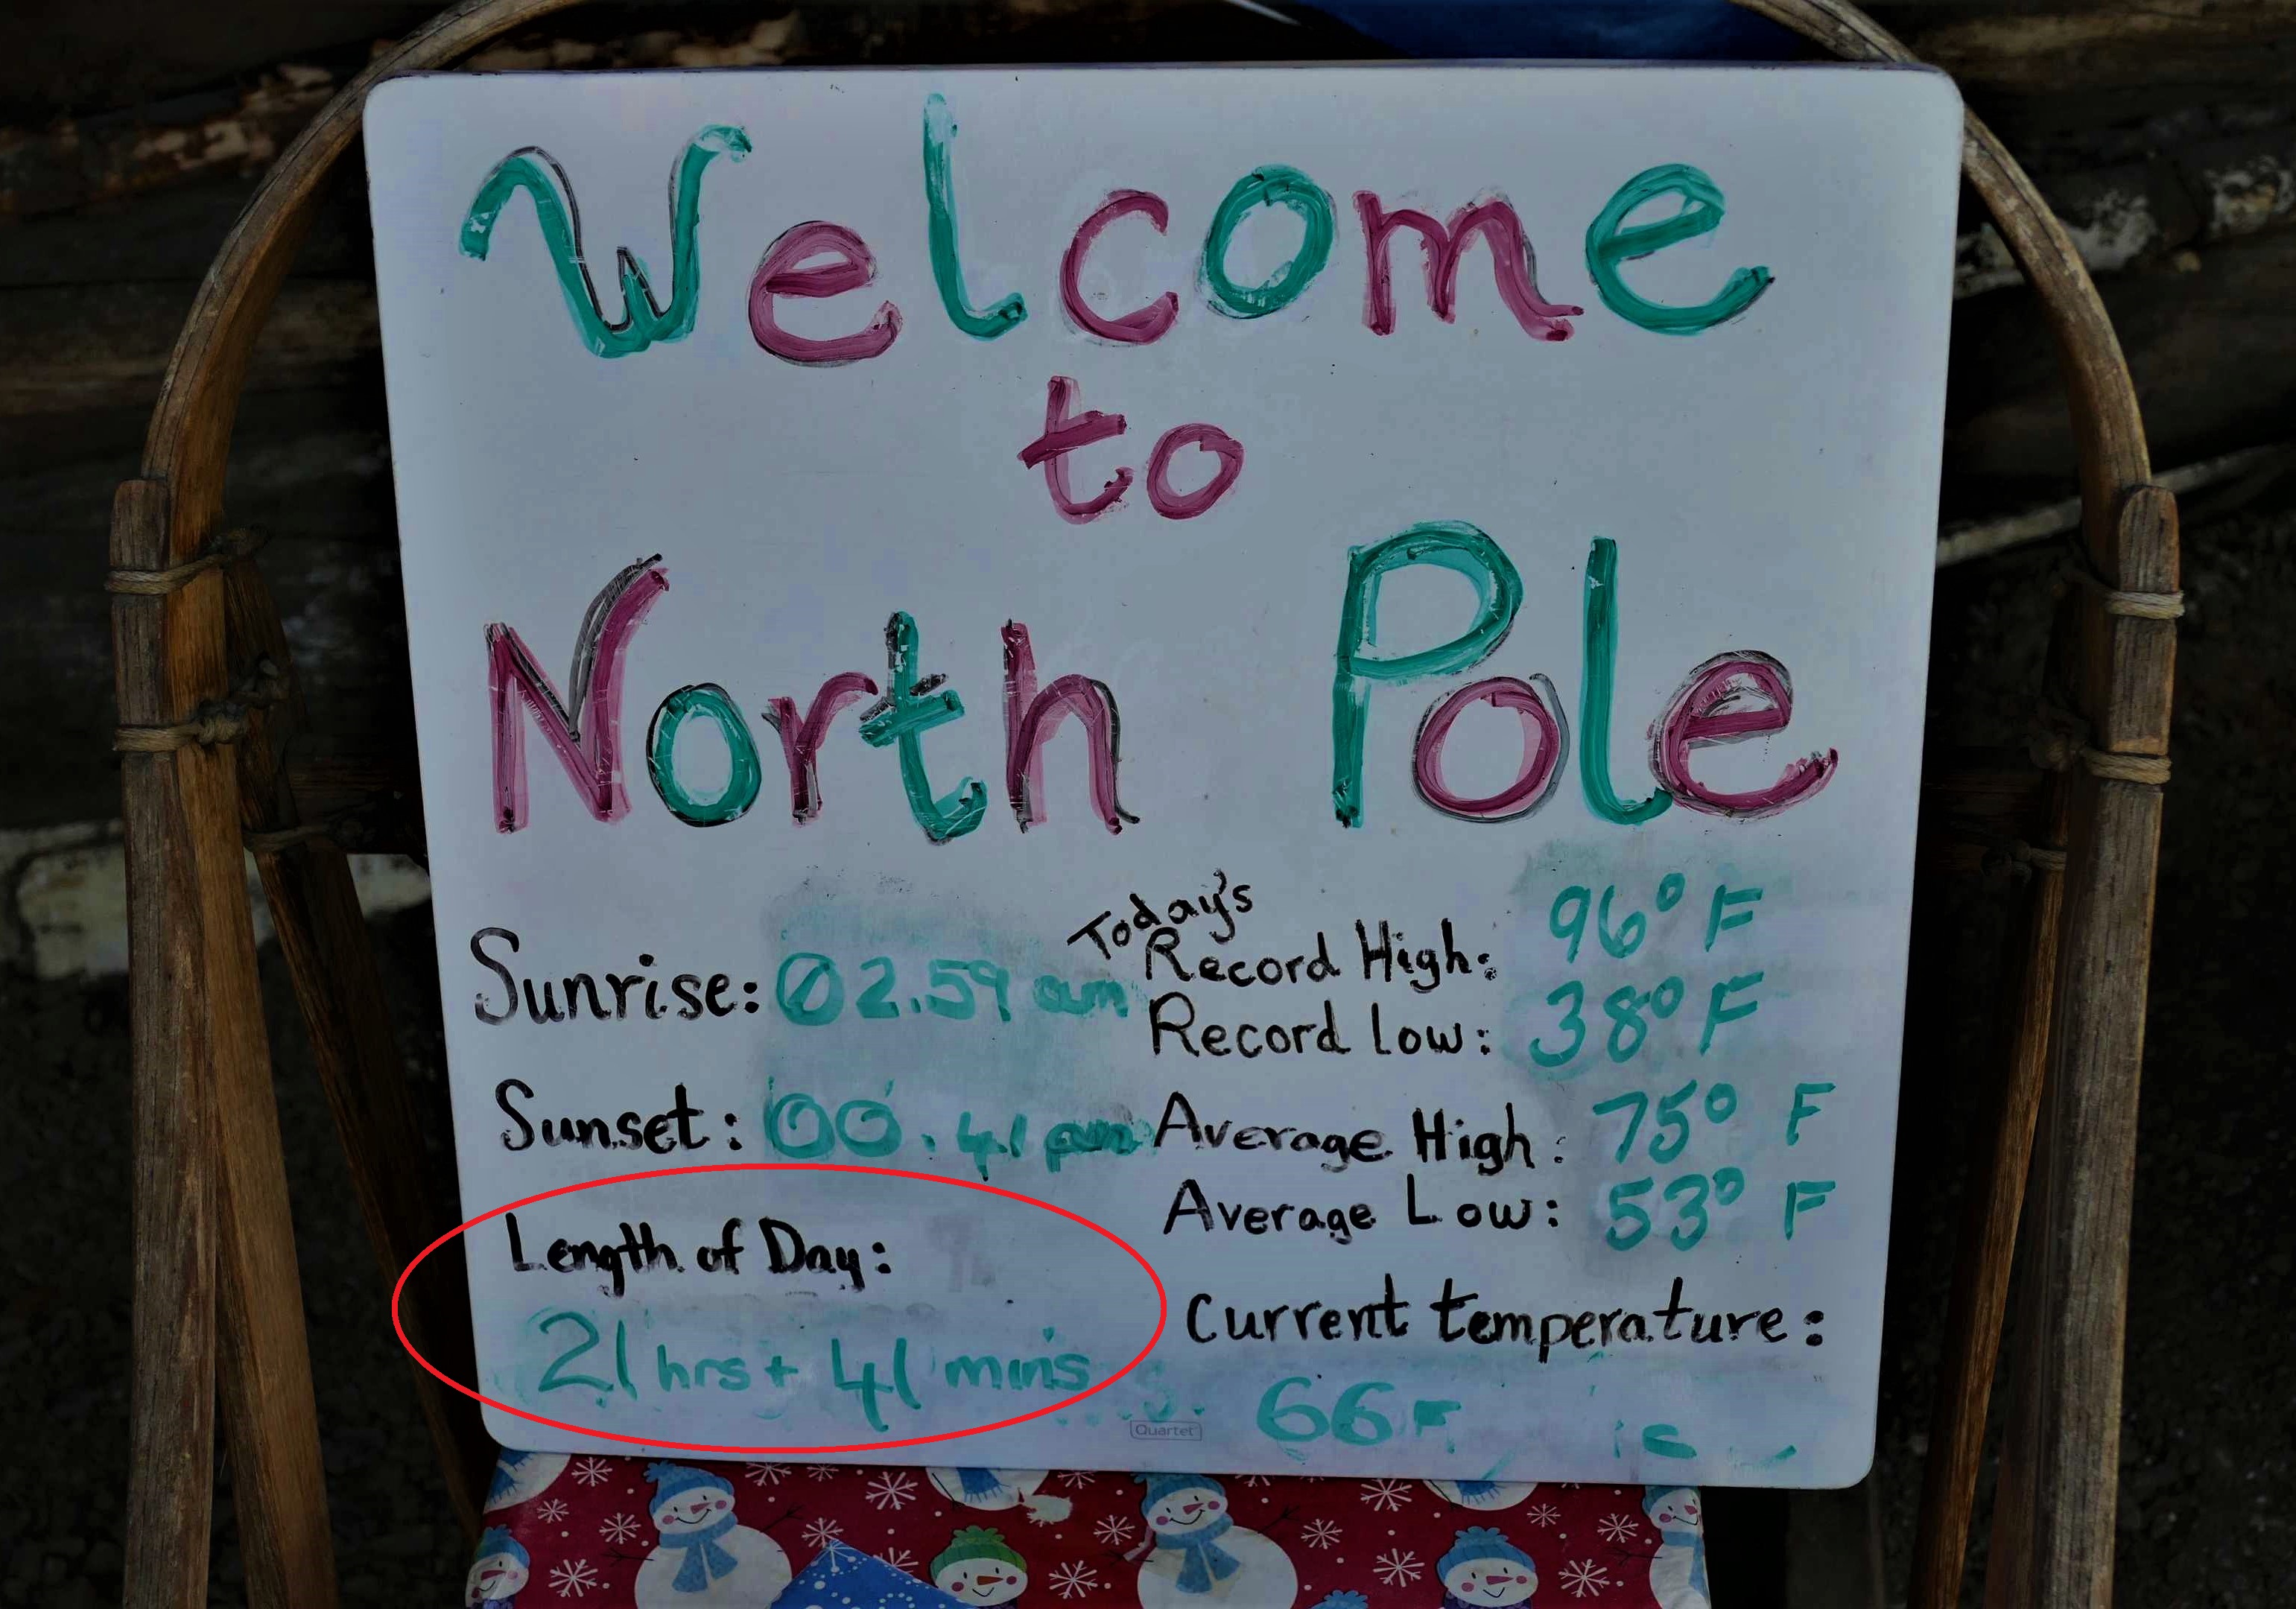 Welcome
to
North Pole
Sunrise: 02.59 am
Sunset: 00.41 pm
Length of Day:
21 hrs + 41 mins
Today's
Record High: 96° F
Record Low: 38° F
Average High: 75° F
Average Low: 53° F
Current temperature:
66 F
Quartet